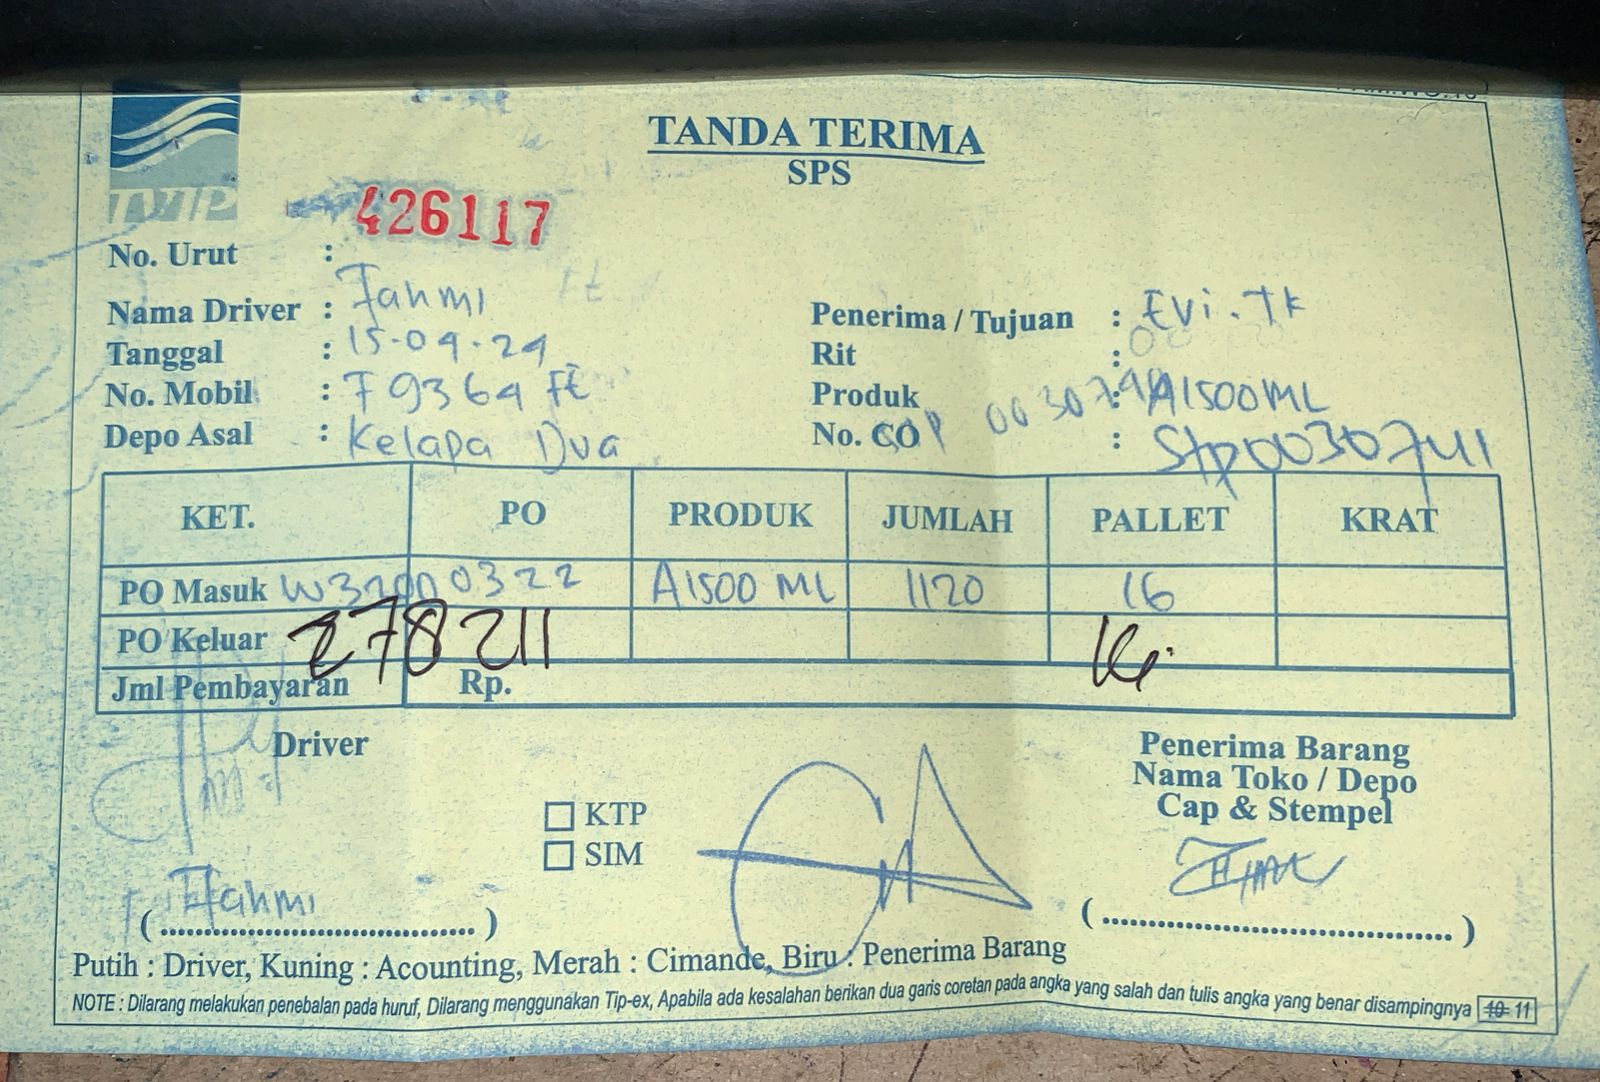 TVIP
TANDA TERIMA
SPS
No. Urut : 426117
Nama Driver : Fahmi
Tanggal : 15-09-24
No. Mobil : F 9364 FE
Depo Asal : Kelapa Dua
Penerima / Tujuan : Evi. Tk
Rit :
Produk : A1500ML
No. CO : Stp0030741
KET. PO PRODUK JUMLAH PALLET KRAT
PO Masuk W32000322 A1500 ML 1120 16
PO Keluar 278211
Jml Pembayaran Rp.
Driver
KTP
SIM
Penerima Barang
Nama Toko / Depo
Cap & Stempel
( Fahmi )
(........................................)
Putih : Driver, Kuning : Acounting, Merah : Cimande, Biru : Penerima Barang
NOTE : Dilarang melakukan penebalan pada huruf, Dilarang menggunakan Tip-ex, Apabila ada kesalahan berikan dua garis coretan pada angka yang salah dan tulis angka yang benar disampingnya 10 11